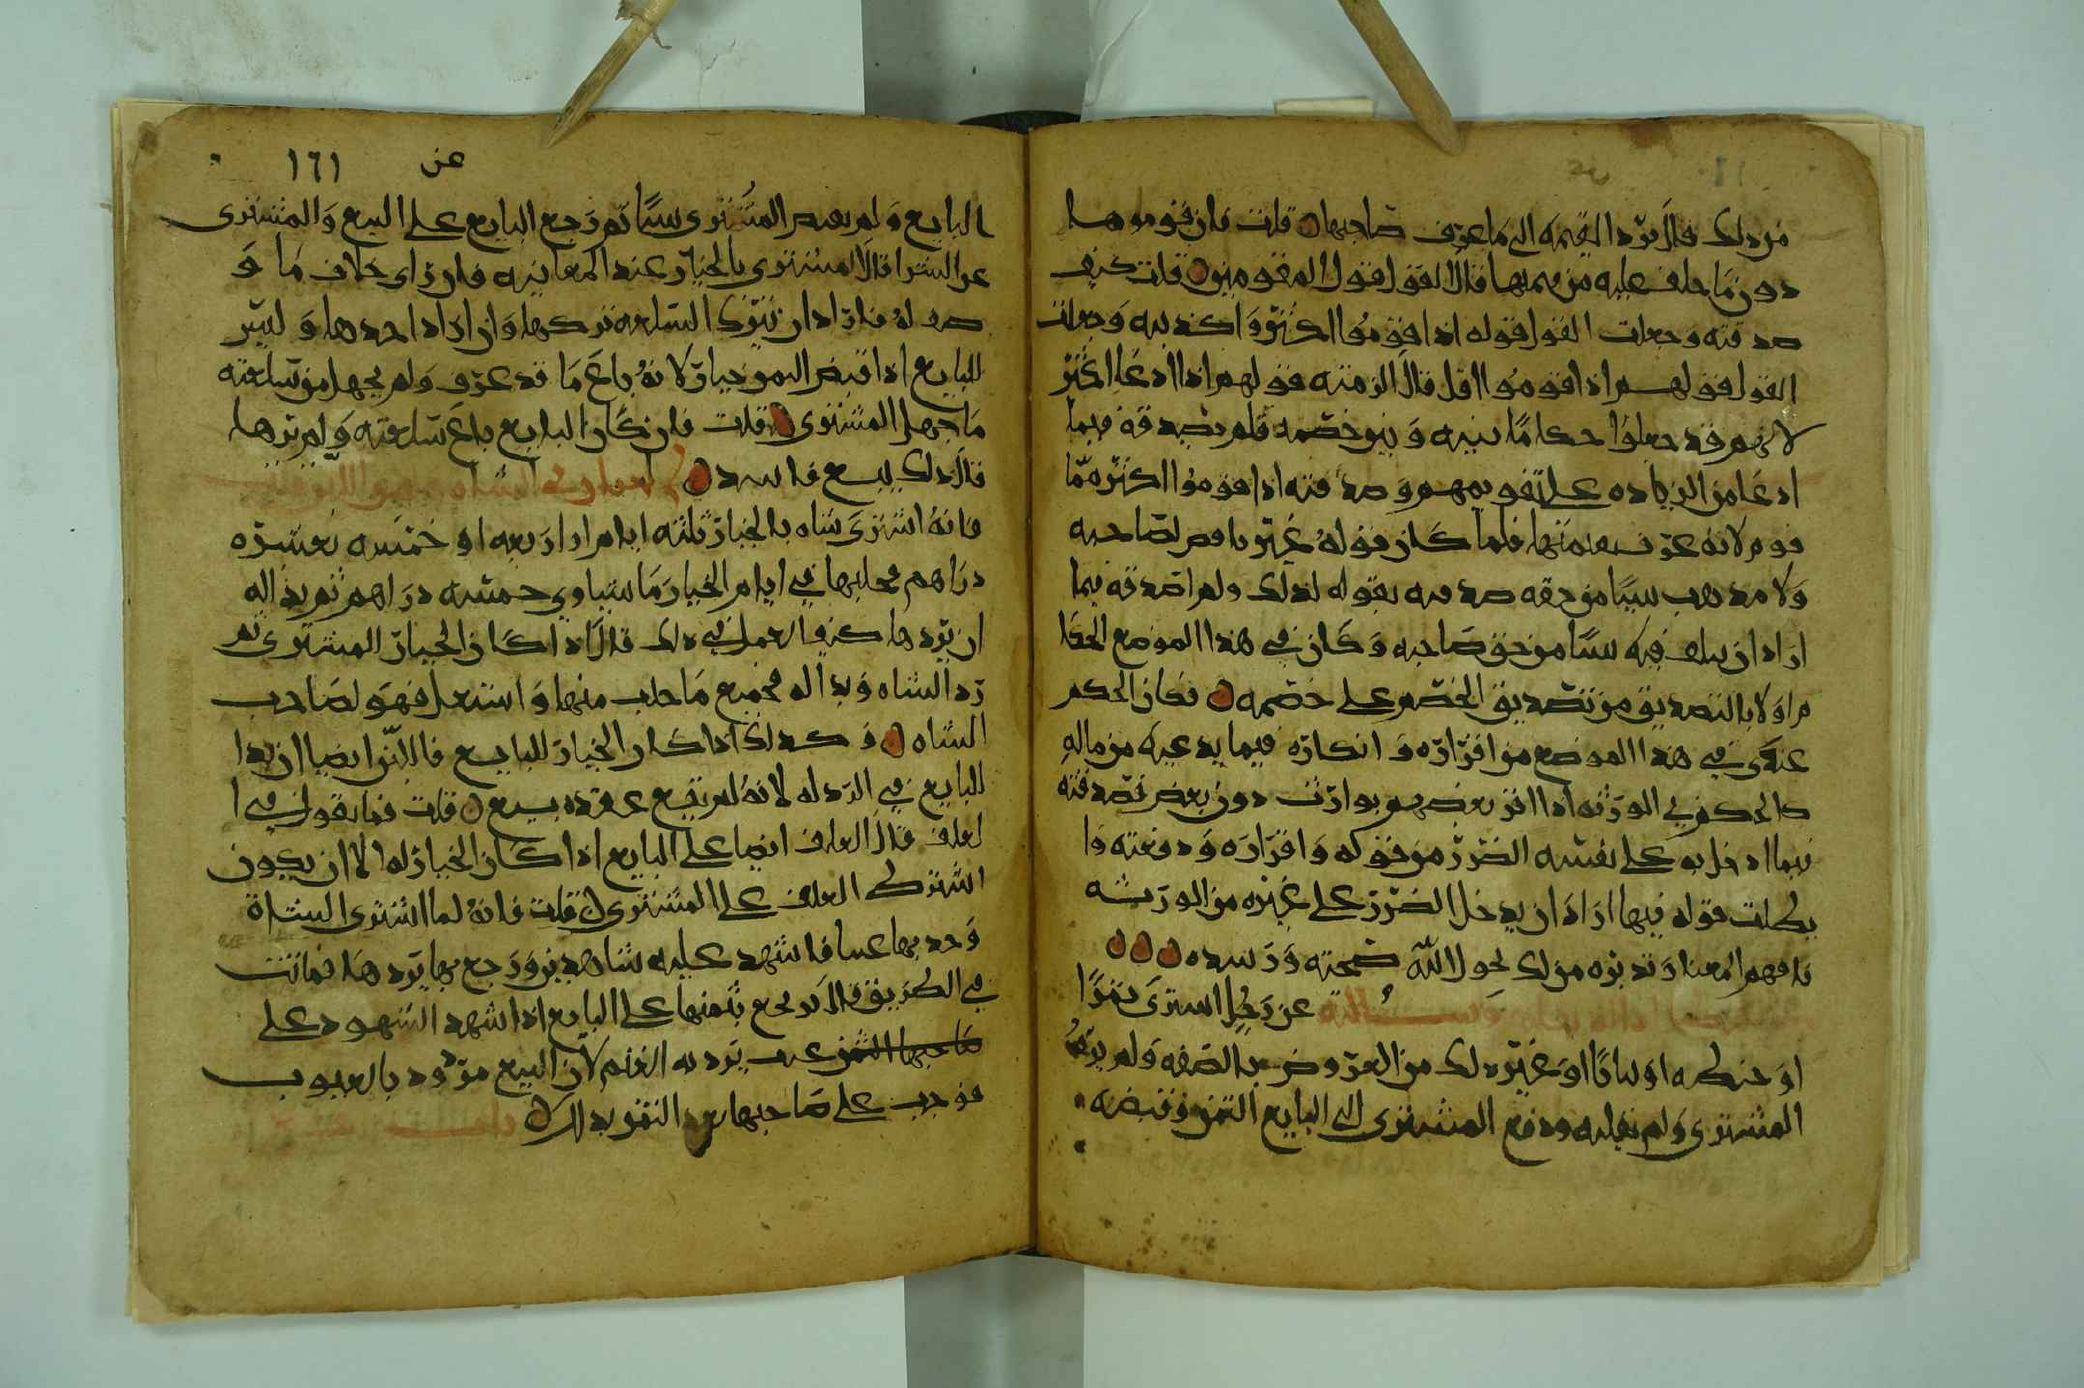 من ذلك قال يرد القيمه الى ما عرف صاحبها قلت فان قوموها
دون ما حلف عليه من قيمتها قال القول قول المقومين قلت كيف
صدقته وجعلت القول قوله اذا قوموا اكثر واكذبيه وجعلت
القول قولهم اذا قوموا اقل قال الزمته قولهم اذا ادعا اكثر
لانهم قد جعلوا حكاما بينه وبين خصمه فلم يصدقه فيما
ادعا من الزياده على تقويمهم وصدقته اذا قوموا اكثر مما
قوم لانه عرف بقيمتها فلما كان قوله غير ناقص لصاحبه
ولا مذهب شيا من حقه صدقته بقوله لذلك ولم اصدقه فيما
اراد ان يتلف فيه شيا من حق صاحبه وكان في هذا الموضع الحكا
م اولا بالتصديق من تصديق الخصم على خصمه فكان الحكم
عندي في هذا الموضع من اقراره وانكاره فيما يدعيه من ماله
كالحكم في الورثه اذا اقر بعضهم بوارث دون بعض تصدقته
فيما ادخل به على نفسه الضرر من قوله واقراره ودفعته وا
بطلت قوله فيها اراد ان يدخل الضرر على غيره من الورثه
فافهم المعنا وتدبره من لك بحول الله صحته ورشده
عن رجل اشترى تمرا
او حنطه او ثيابا او غير ذلك من العروض بالصفه ولم يره
المشتري ولم يقلبه ودفع المشتري الى البايع الثمن وقبضه
عن ١٦١
البايع ولم يقبض المشتري شيا ثم رجع البايع على البيع والمشتري
عن الشرا قال المشتري بالخيار عند المعاينه فان راى خلاف ما و
صف له فاراد ان يترك السلعه تركها وان اراد اخذها وليس
للبايع اذا قبض الثمن خيار لانه باع ما قد عرف ولم يجهل من سلعته
ما جهل المشتري قلت فان كان البايع باع سلعته ولم يرها
قال ذلك بيع فاسد
فانه اشترى شاه بالخيار ثلثه ايام او اربعه او خمسه بعشره
دراهم فحلبها في ايام الخيار ما يساوي خمسه دراهم ثم بدا له
ان يردها كيف العمل في ذلك قال اذا كان الخيار المشتري ثم
رد الشاه وبدا له فجميع ما حلب منها واستغل فهو لصاحب
الشاه وكذلك اذا كان الخيار للبايع فاللبن ايضا ان بدا
للبايع في الرد له لانه لم يقع عقده بيع قلت فما تقول في ا
لعلف قال العلف ايضا على البايع اذا كان الخيار له الا ان يكون
اشترط العلف على المشتري قلت فانه لما اشترى الشاة
وجد بها عيبا فاشهد عليه شاهدين ورجع بها يردها فماتت
في الطريق قال يرجع بثمنها على البايع اذا شهد الشهود على
عيب يرد به الغنم لان البيع مردود بالعيوب
فوجب على صاحبها رد النقد